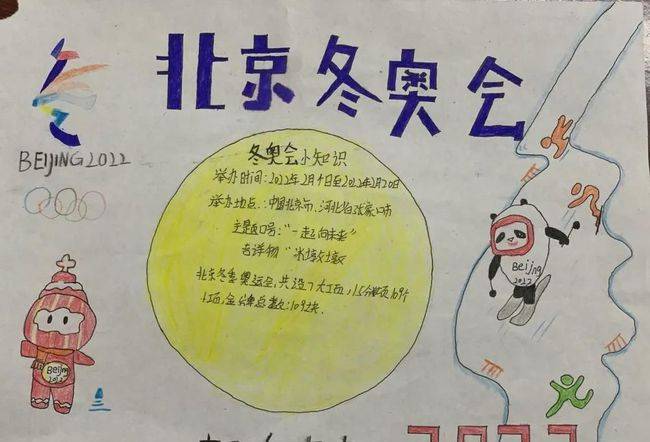 北京冬奥会
BEIJING 2022
冬奥会小知识
举办时间:2022年2月4日至2022年2月20日
举办地点:中国北京市、河北省张家口市
主题口号:"一起向未来"
吉祥物"冰墩墩
北京冬季奥运会,共设7大项,15分项109个
小项,金牌总数:109块.
Beijing
2022
Beijing
2022
2022